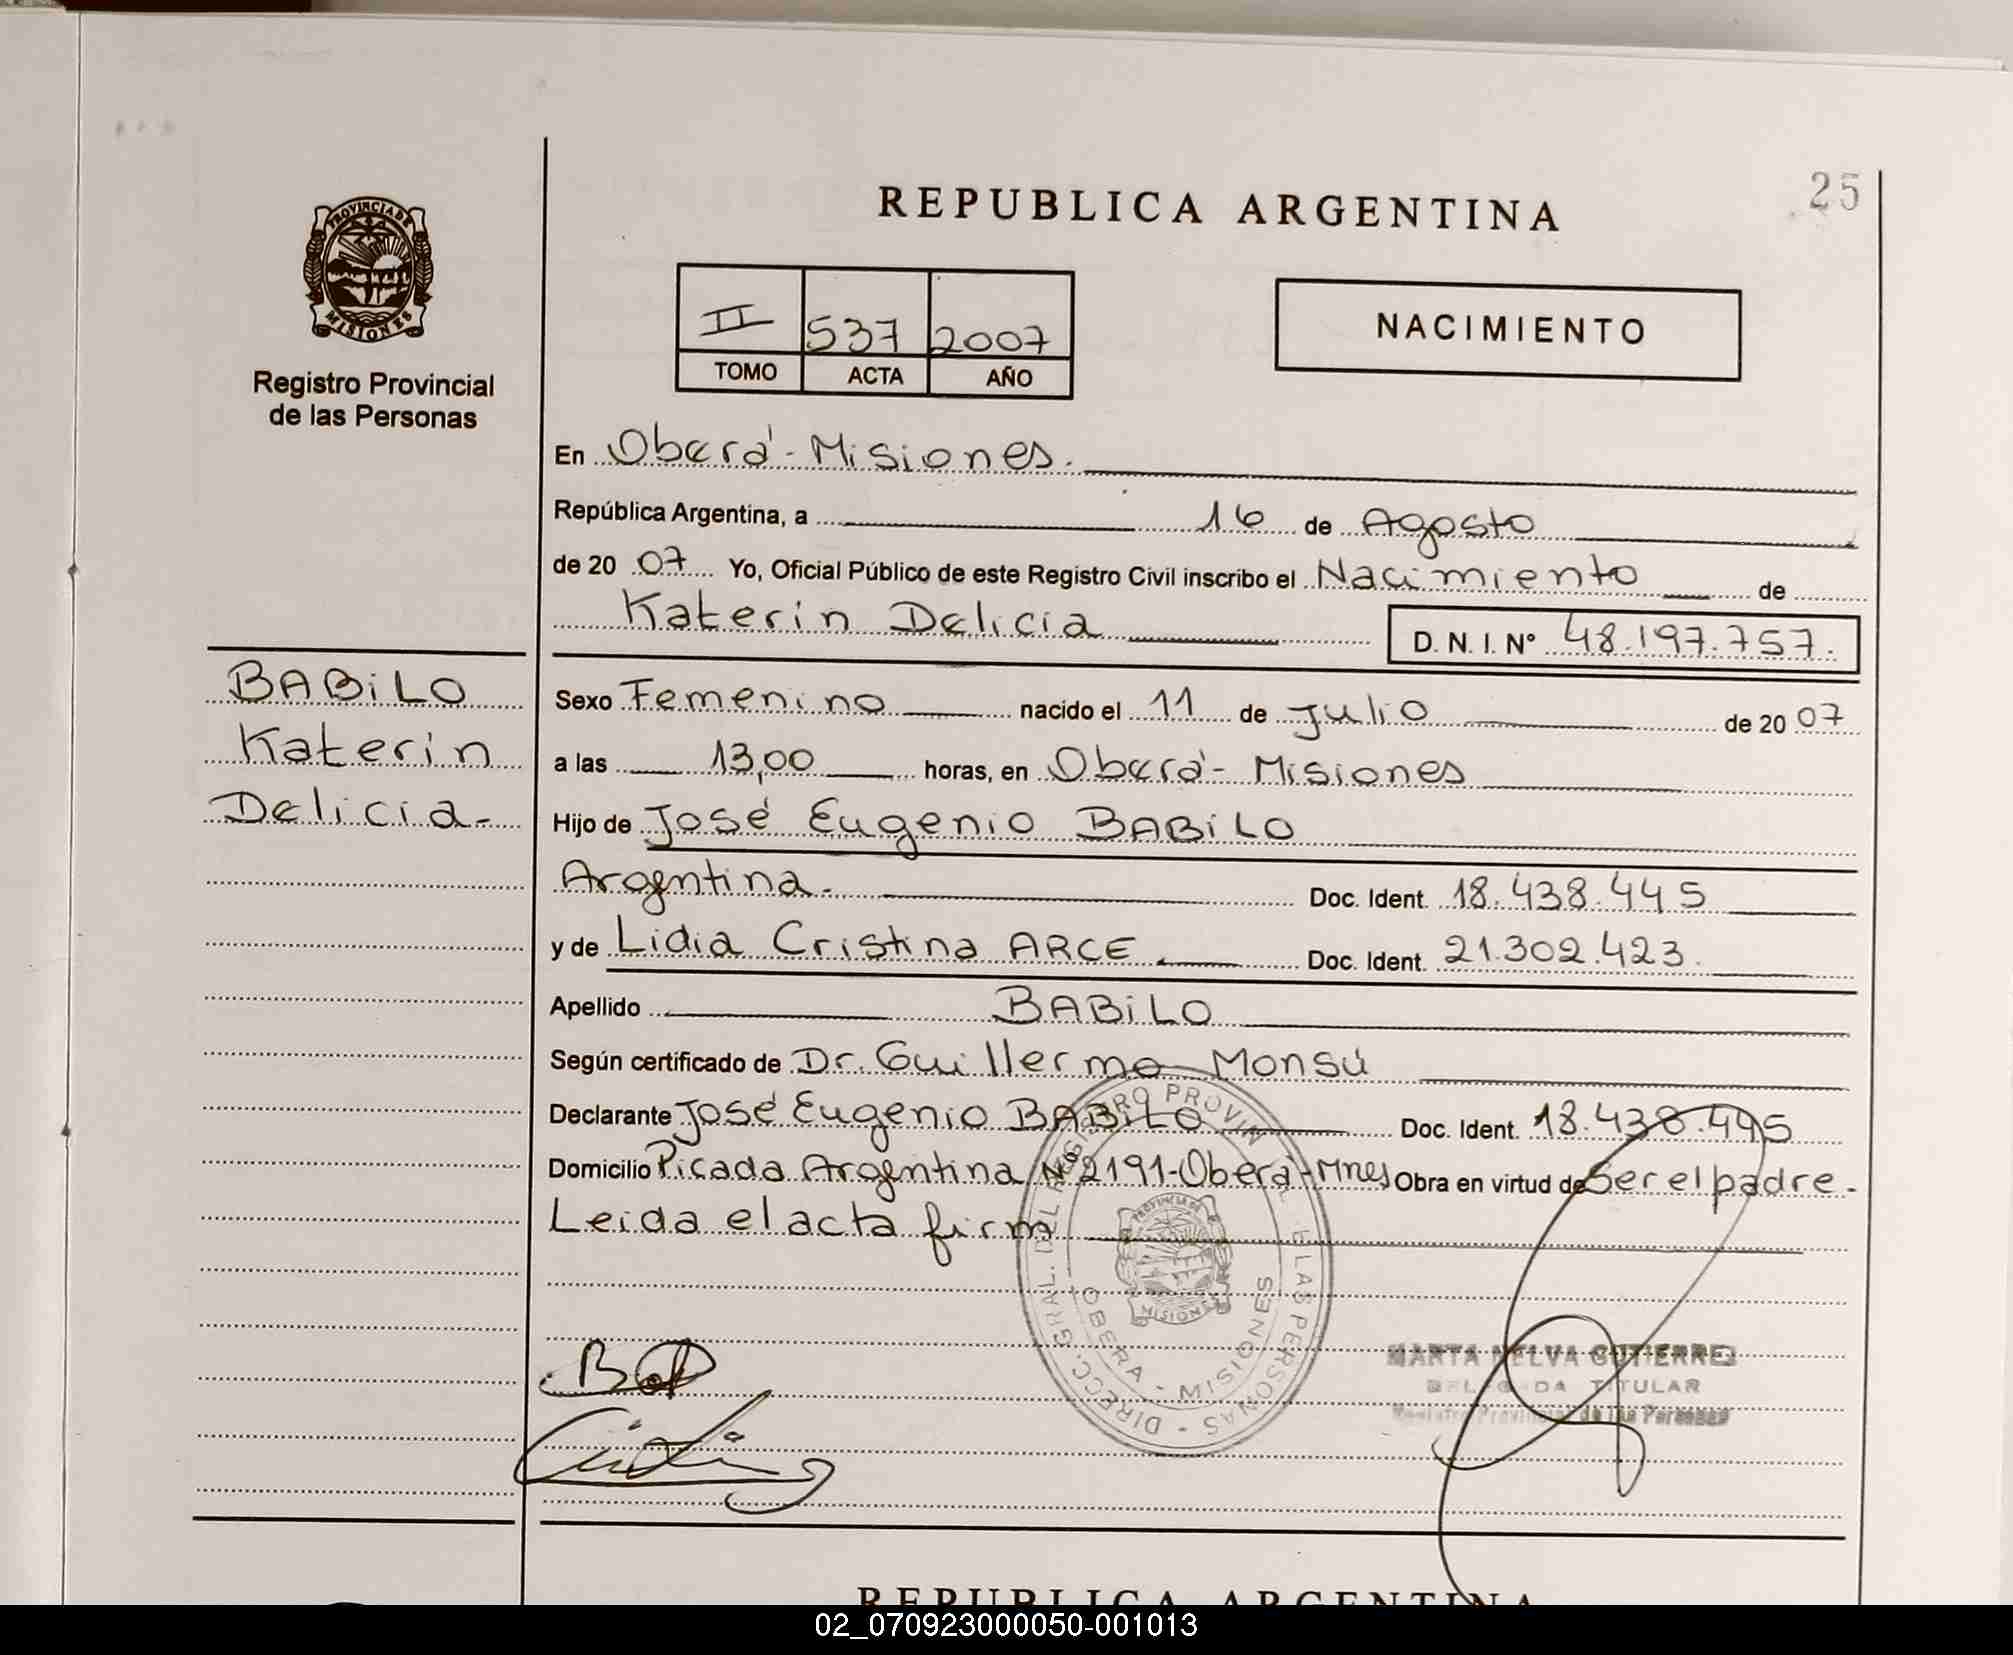 25
REPUBLICA ARGENTINA
PROVINCIA DE
MISIONES
Registro Provincial
de las Personas
II 537 2007
TOMO ACTA AÑO
NACIMIENTO
En Oberá - Misiones.
República Argentina, a 16 de Agosto
de 20 07 Yo, Oficial Público de este Registro Civil inscribo el Nacimiento de
Katerin Delicia D. N. I. Nº 48.197.757.
BABiLO
Katerin
Delicia-
Sexo Femenino nacido el 11 de Julio de 20 07
a las 13,00 horas, en Oberá - Misiones
Hijo de José Eugenio BABiLO
Argentina.- Doc. Ident. 18.438.445
y de Lidia Cristina ARCE. Doc. Ident. 21.302.423.
Apellido BABiLO
Según certificado de Dr. Guillermo Monsú
Declarante José Eugenio BABiLO Doc. Ident. 18.438.445
Domicilio Picada Argentina Nº2191-Oberá-Mnes Obra en virtud de Ser el padre.-
Leida el acta firm
DIRECC. GRAL. DEL REGISTRO PROVIN LAS PERSONAS -
OBERA - MISIONES
PROVINCIA DE
MISIONES
MARTA NELVA GUTIERREZ
DELEGADA TITULAR
Registro Provincial de las Personas
REPUBLICA ARGENTINA
02_070923000050-001013